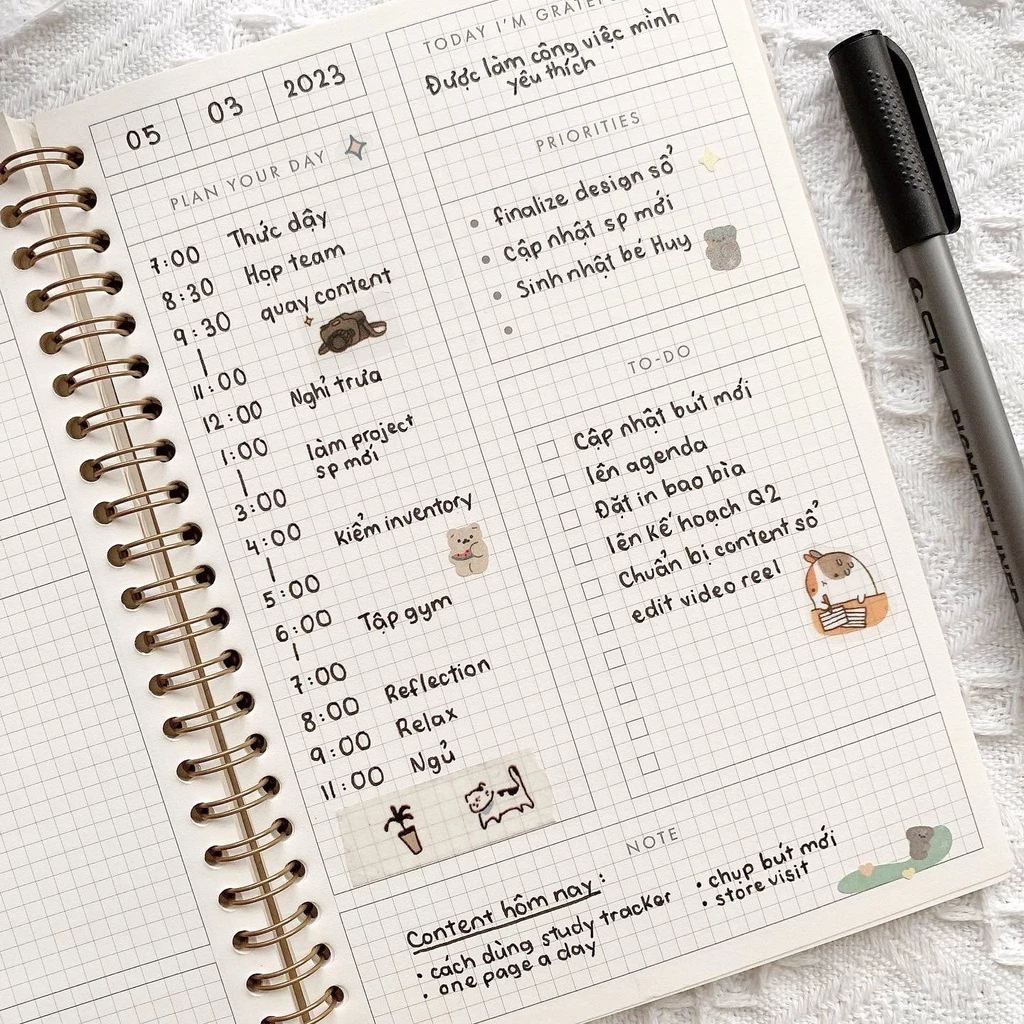 05 03 2023
TODAY I'M GRATEFUL
Được làm công việc mình
yêu thích
PLAN YOUR DAY
7:00 Thức dậy
8:30 Họp team
9:30 quay content
|
11:00
12:00 Nghỉ trưa
1:00 làm project
| sp mới
3:00
4:00 Kiểm inventory
|
5:00
6:00 Tập gym
|
7:00
8:00 Reflection
9:00 Relax
11:00 Ngủ
PRIORITIES
• finalize design sổ
• Cập nhật sp mới
• Sinh nhật bé Huy
•
TO-DO
Cập nhật bút mới
lên agenda
Đặt in bao bìa
lên kế hoạch Q2
Chuẩn bị content sổ
edit video reel
NOTE
Content hôm nay:
• cách dùng study tracker
• one page a day
• chụp bút mới
• store visit
PIGMENT LINER